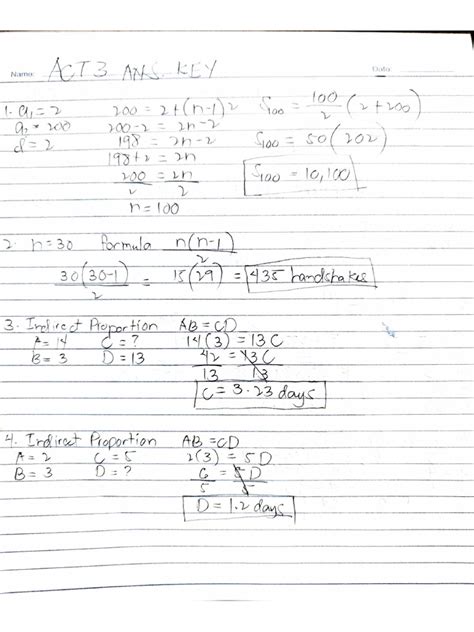 Name: ACT 3 ANS. KEY Date:
1. a₁ = 2 200 = 2+(n-1)2 S₁₀₀ = 100/2 (2+200)
a₂ = 200 200-2 = 2n-2
d = 2 198 = 2n-2 S₁₀₀ = 50(202)
198+2 = 2n
200/2 = 2n/2 S₁₀₀ = 10,100
n = 100
2. n=30 formula n(n-1)/2
30(30-1)/2 = 15(29) = 435 handshakes
3. Indirect Proportion AB = CD
A = 14 C = ? 14(3) = 13C
B = 3 D = 13 42/13 = 13C/13
C = 3.23 days
4. Indirect Proportion AB = CD
A = 2 C = 5 2(3) = 5D
B = 3 D = ? 6/5 = 5D/5
D = 1.2 days